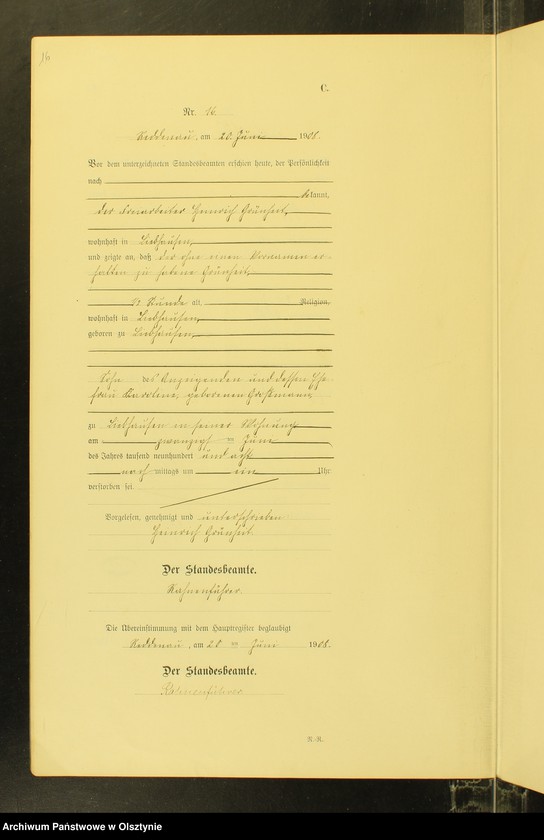 16
C.
Nr. 16.
Reddenau, am 20. Juni 1908.
Vor dem unterzeichneten Standesbeamten erschien heute, der Persönlichkeit
nach
bekannt,
der Heinrich Grünheit,
wohnhaft in Liebhausen,
und zeigte an, daß der ohne einen Vornamen er-
halten zu habene Grünheit,
Stunde alt, Religion,
wohnhaft in Liebhausen,
geboren zu Liebhausen,
Sohn des Anzeigenden und dessen Ehe-
frau Karoline, geborenen Großmann,
zu Liebhausen in seiner Wohnung
am zwanzigsten Juni
des Jahres tausend neunhundert und acht
nach mittags um ein Uhr
verstorben sei.
Vorgelesen, genehmigt und unterschrieben
Heinrich Grünheit.
Der Standesbeamte.
Die Übereinstimmung mit dem Hauptregister beglaubigt
Reddenau, am 20ten Juni 1908.
Der Standesbeamte.
R.-R.
Archiwum Państwowe w Olsztynie